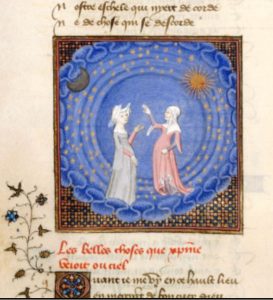 nostre eschele qui mert de corde
ne de chose qui se descorde
Les belles choses que xpine
veoit ou ciel
Quant ie me vy en ce hault lieu